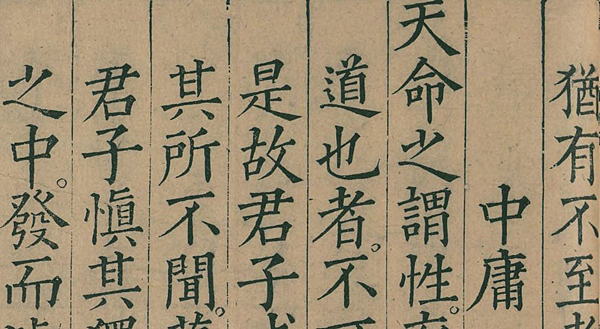 猶有不至
中庸
天命之謂性。
道也者。不
是故君子
其所不聞。
君子慎其
之中。發而